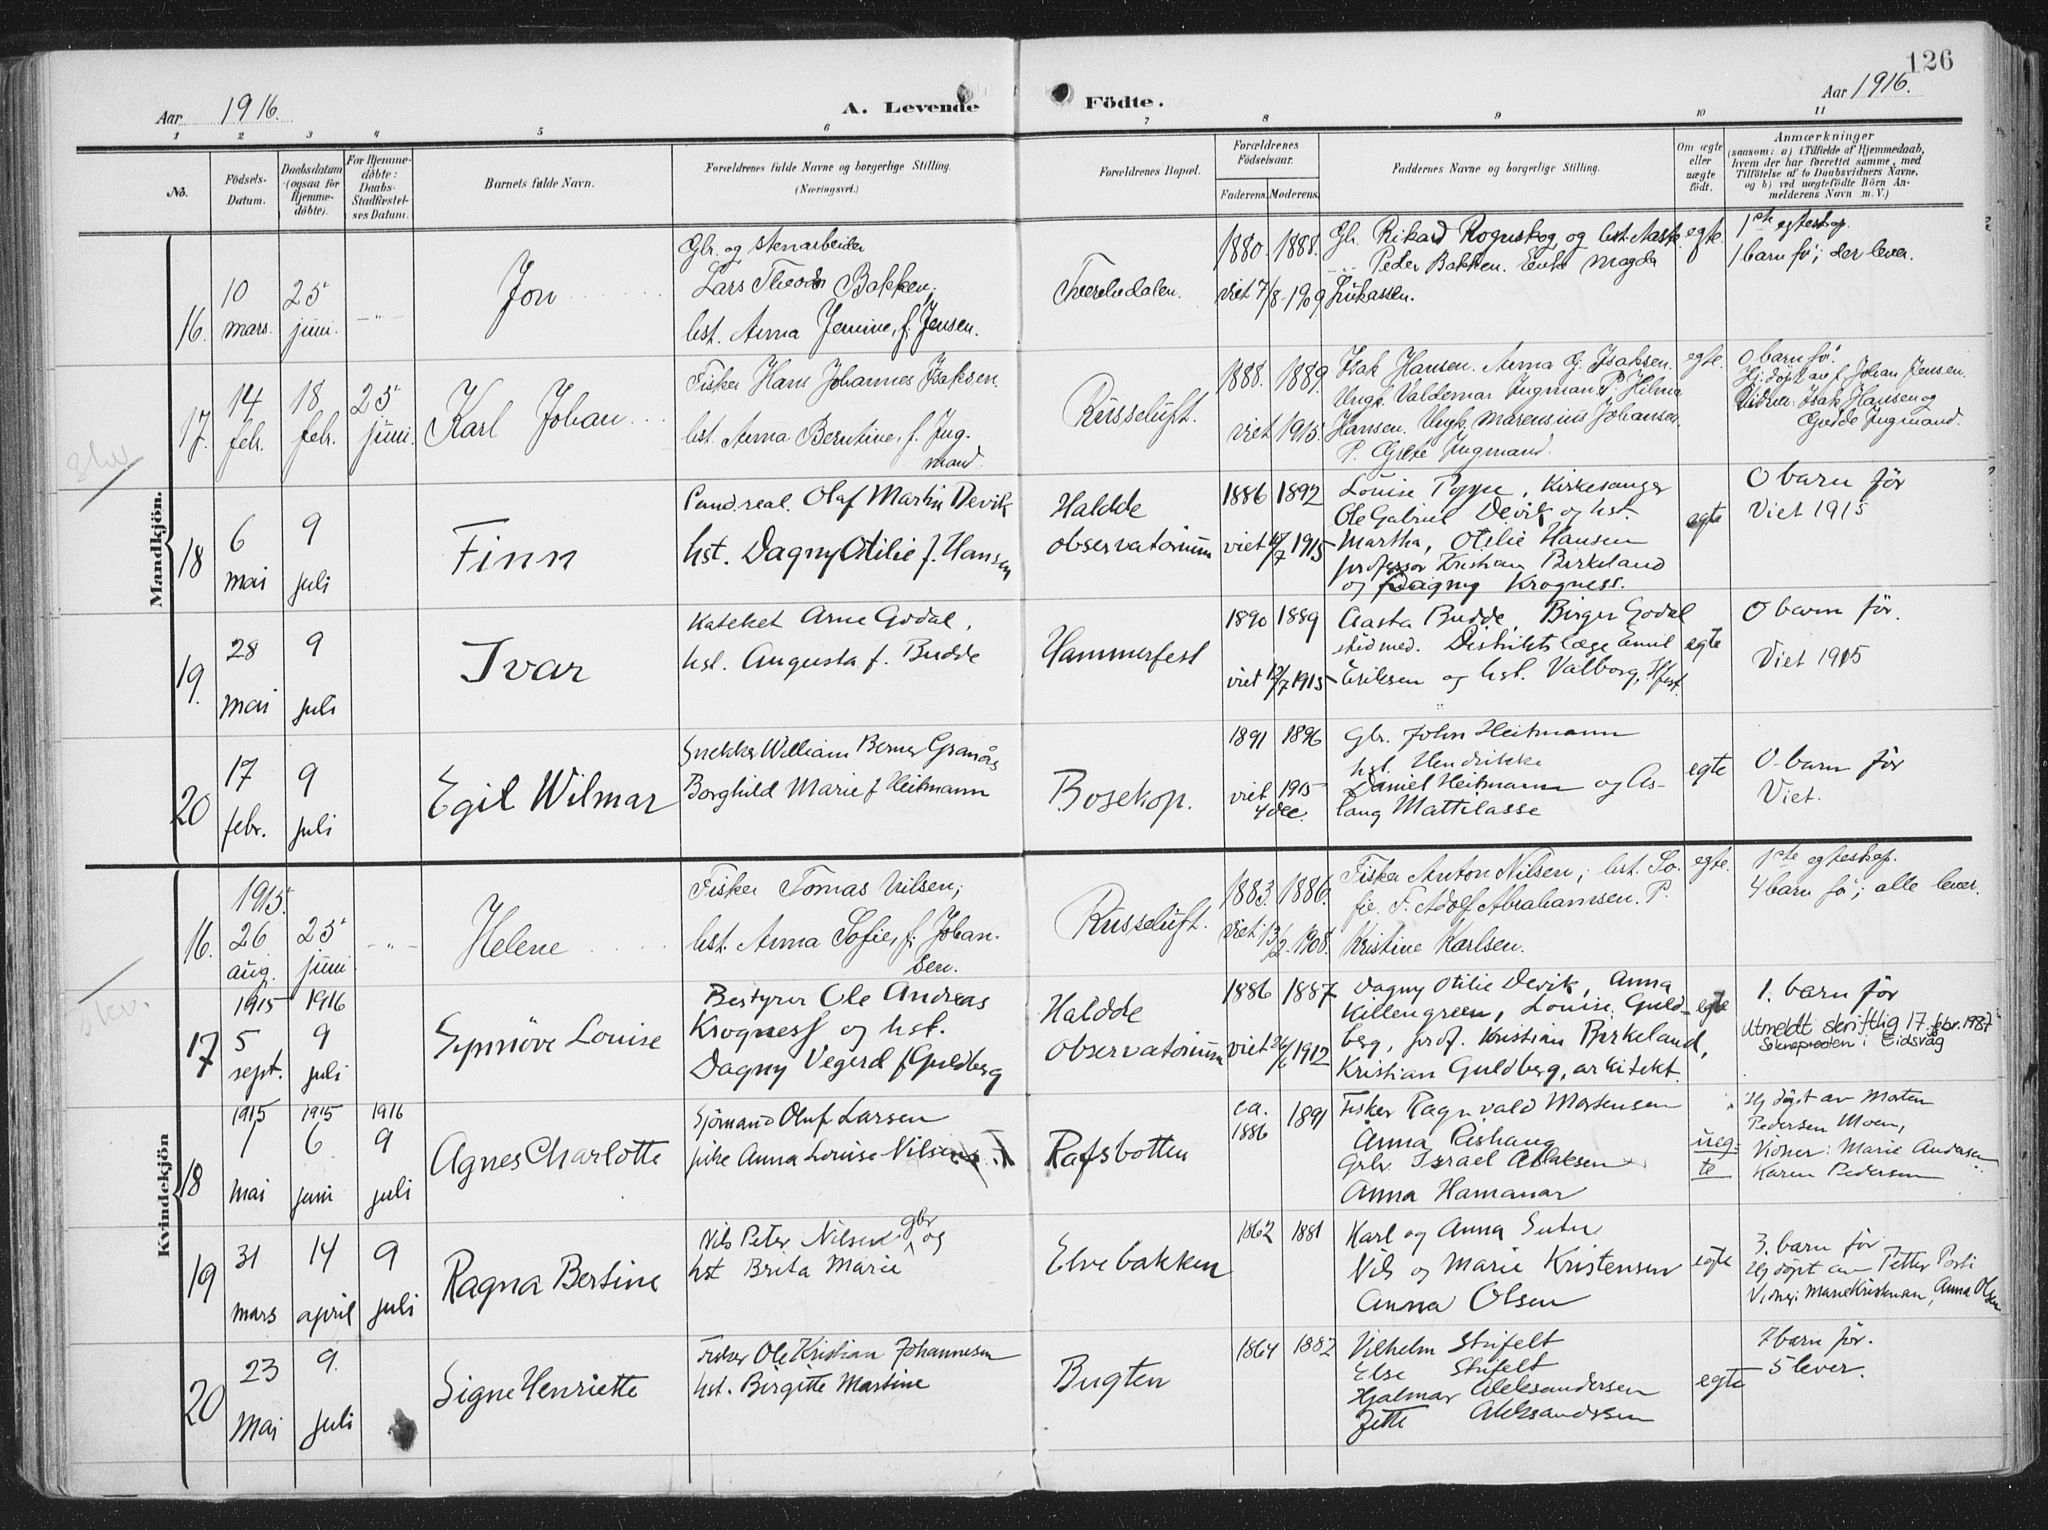 126
Aar 1916.
A. Levende Födte.
Aar 1916.
1 2 3 4 5 6 7 8 9 10 11
No.
Födsels-Datum.
Daabsdatum (ogsaa for Hjemme-döbte).
For Hjemme-döbte: Daabs-Stadfæstel-ses Datum.
Barnets fulde Navn.
Forældrenes fulde Navne og borgerlige Stilling.
(Næringsvei.)
Forældrenes Bopæl.
Forældrenes Födselsaar.
Faderens. Moderens.
Faddernes Navne og borgerlige Stilling.
Om ægte eller uægte födt.
Anmærkninger
(saasom: a) i Tilfælde af Hjemmedaab, hvem der har forrettet samme, med Tilföielse af to Daabsvidners Navne, og b) ved uægtefödte Börn Anmelderens Navn m. V.)
Mandkjön.
16. 10 mars. 25 juni. -"-
Jon
Gbr. og stenarbeider
Lars Theodor Bakken;
hst. Anna Jemine, f. Jensen.
Tverelvdalen.
1880. 1888.
viet 7/8-1909
Gbr. Rikard Rognskog og hst. Aaste.
Peder Bakken. Enke Magda
egte.
1ste egteskap.
1 barn fö; der lever.
17. 14 febr. 18 febr. 25 juni.
Karl Johan
Fisker Hans Johannes Isaksen.
hst. Anna Berntine, f. Ing-
mand.
Russeluft.
1888. 1889.
viet 1915.
Isak Hansen. Anna G. Isaksen.
Ungk. Valdemar Ingman. P. Hilma
Hansen. Ungk. Marensius Johansen.
P. Grete Ingmand.
egte.
0 barn fö.
Hj. döpt av f. Johan Jensen.
Vidner: Isak Hansen og
Gjedde Ingmand.
18 6 mai 9 juli
Finn
Cand. real. Olaf Martin Devik
hst. Dagny Otilie f. Hansen
Haldde
observatorium
1886 1892
viet /7 1915
Louise Poppe, Kirkesanger
Ole Gabriel Devik og hst.
Martha, Otilie Hansen
professor Kristian Birkeland
og Dagny Krogness.
egte
0 barn för
Viet 1915
19. 28 mai 9 juli
Ivar
Kateket Arne Godal,
hst. Augusta f. Budde
Hammerfest
1890 1889
viet 12/7 1915
Aasta Budde, Birger Godal
stud med. Distriktslæge Emil
Eriksen og hst. Valborg, Hfest.
egte
0 barn för.
Viet 1915
20 17 febr. 9 juli
Egil Wilmar
Snekker William Berner Granås
Borghild Marie f Heitmann
Bosekop.
1891 1896
viet 1915
4 dec.
Gbr. John Heitmann
hst. Hendrikke
Daniel Heitmann og As-
laug Mattilasse
egte
0 barn för
Viet.
Kvindekjön
16. 1915. 26 aug. 25 juni -"-
Helene
Fisker Tomas Nilsen;
hst. Anna Sofie, f. Johan-
sen.
Russeluft.
1883. 1886.
viet 13/2. 1908.
Fisker Anton Nilsen; hst. So-
fie. F. Adolf Abrahamsen. P.
Kristine Karlsen.
egte.
1ste egteskap.
4 barn fö; alle lever.
skr.
17 1915 5 sept. 1916 9 juli
Synnöve Louise
Bestyrer Ole Andreas
Krogness og hst.
Dagny Vegerd f Guldberg
Haldde
observatorium
1886 1887
viet 26/6 1912
Dagny Otilie Devik, Anna
Killengreen, Louise Guld-
berg, prof. Kristian Birkeland,
Kristian Guldberg, arkitekt.
egte
1. barn för
Utmeldt skriftlig 17. febr. 1937
Soknepresten i Eidsvåg
18 1915 1 mai 1915 6 juni 1916 9 juli
Agnes Charlotte
Sjömand Oluf Larsen
pike Anna Louise Nilsen
Rafsbotten
ca. 1886 1891
Fisker Ragnvald Mortensen
Anna Pishang
Grbr. Israel
Anna Hamanar
ueg-
te
Hj döpt av Morten
Pedersen Moen,
Vidner: Marie Andersen
Karen Pedersen
19 31 mars 14 april 9 juli
Ragna Bertine
Nils Peter Nilsen gbr og
hst Brita Marie
Elvebakken
1862 1881
Karl og Anna Suter
Nils og Marie Kristensen
Anna Olsen
egte
3. barn för
Hj döpt av Petter Posti
Vidner: Marie Kristensen, Anna Olsen
20 23 Mai 9 juli
Signe Henriette
Fisker Ole Kristian Johannesen
hst. Birgitte Martine
Bugten
1864 1882
Vilhelm Strifelt
Else Strifelt
Hjalmar Aleksandersen
Zette Aleksandersen
egte
7 barn för.
5 lever.